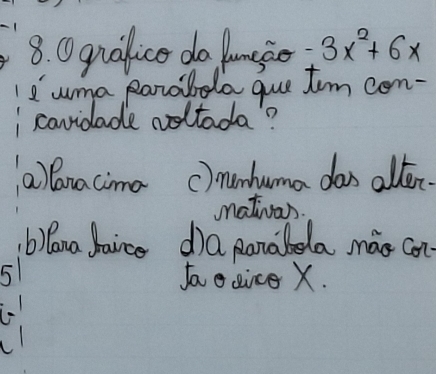 8. O gráfico da função - 3x² + 6x
é uma parábola que tem con-
cavidade voltada ?
a) Para cima c) nenhuma das alter-
nativas.
b) Para baixo d) a parábola não cor-
ta o eixo X.
5